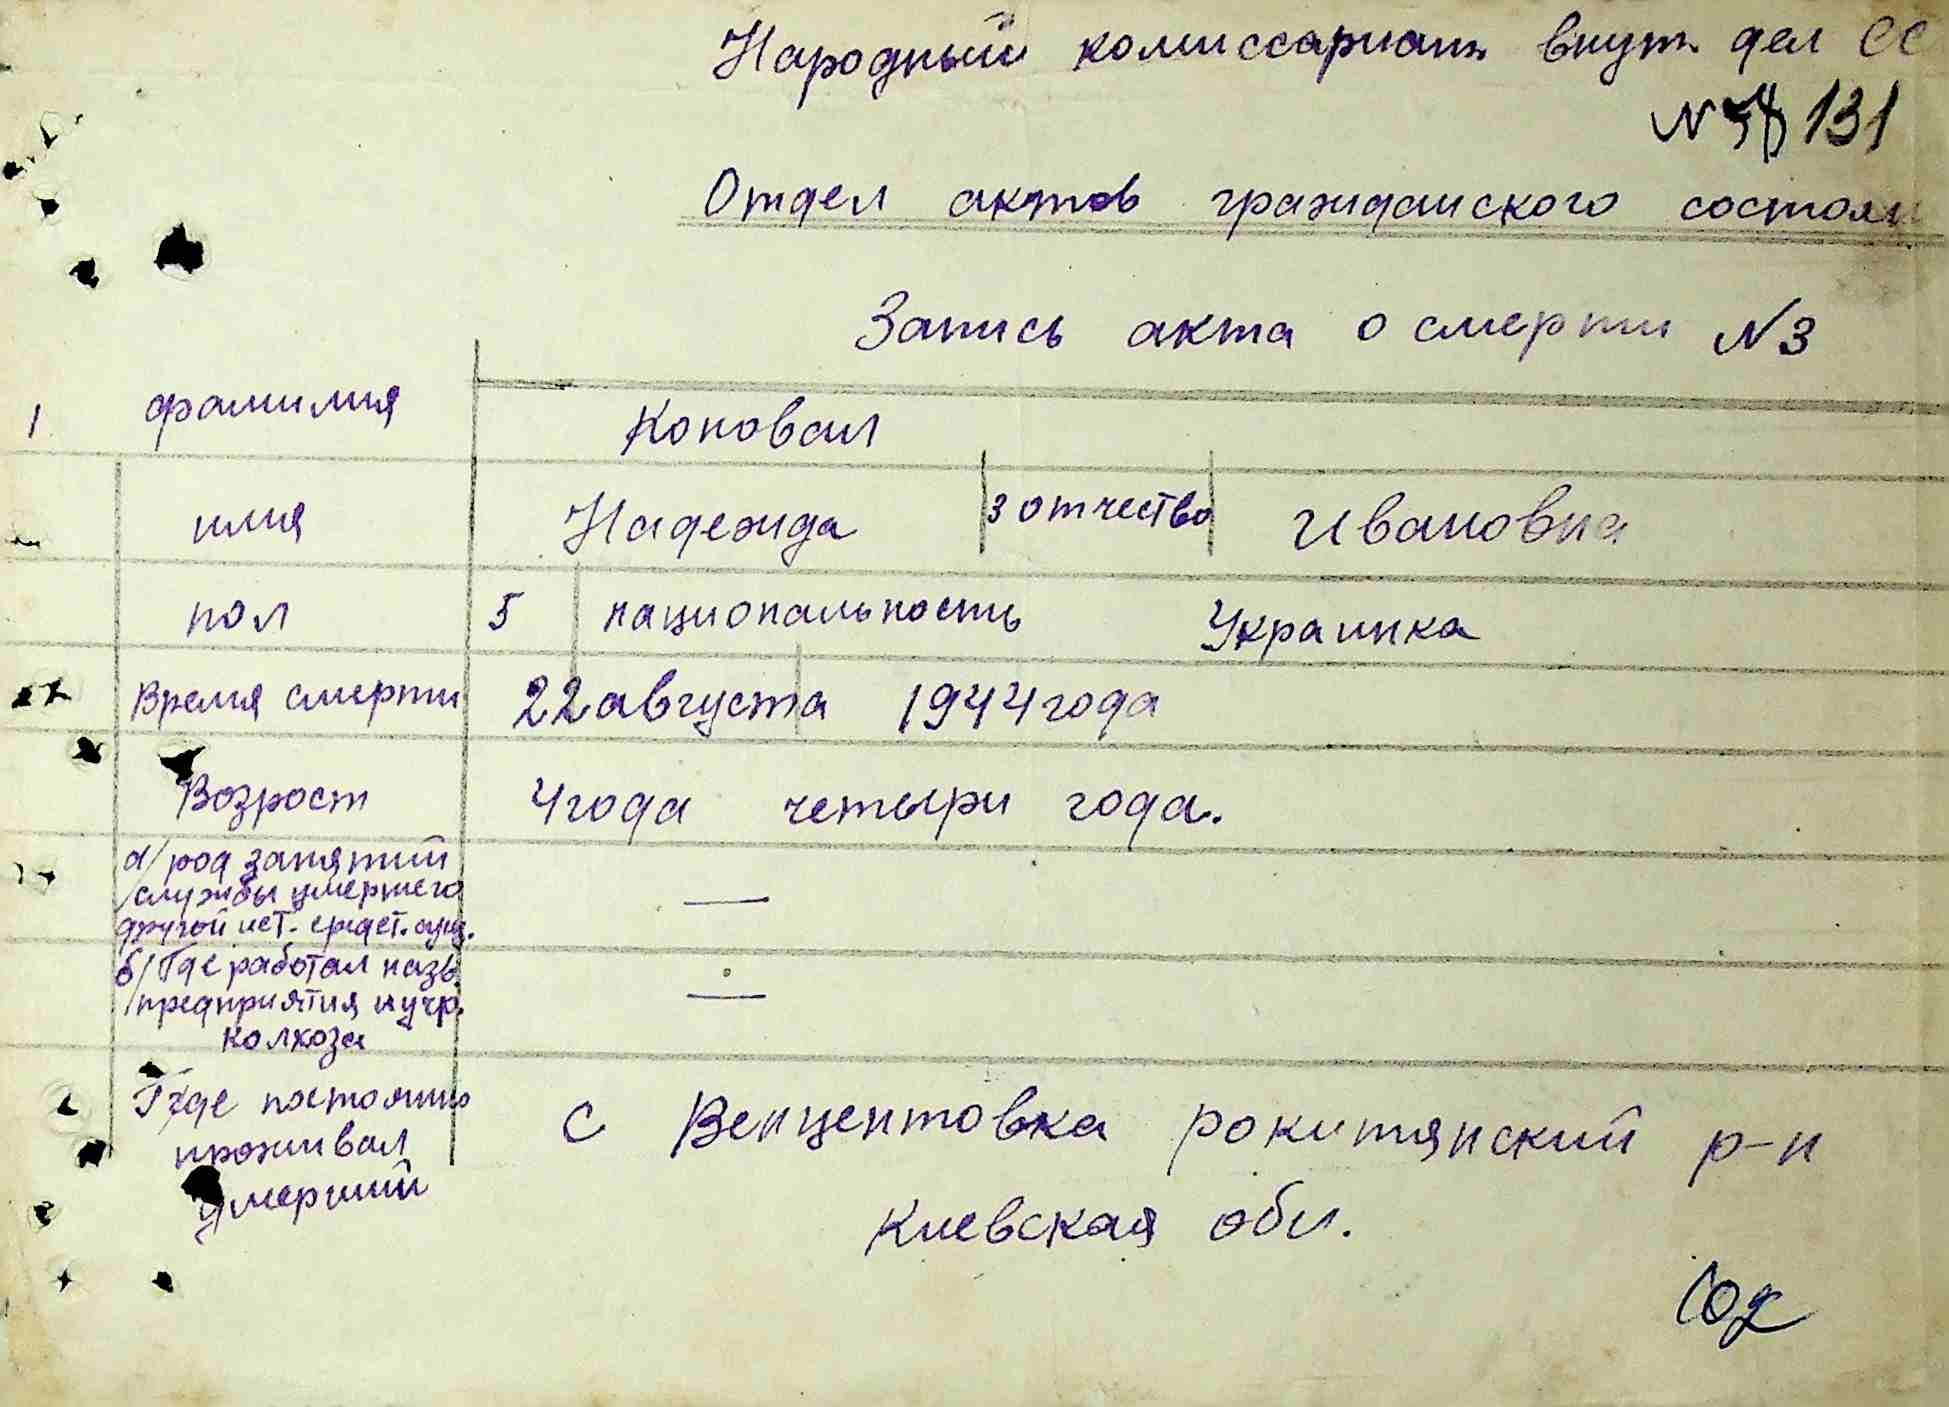 Народный комиссариат внут. дел СС
N 131
Отдел актов гражданского состоян
Запись акта о смерти N 3
1 фамилия Коновал
имя Надежда 3 отчество Ивановна
пол 5 национальность Украинка
Время смерти 22 августа 1944 года
Возрост 4 года четыри года.
а/ род занятий
/службы умершего —
другой ист. средст. сущ.
б/ Где работал назв.
/предприятия и учр. —
колхоза
Где постоянно с Венцентовка рокитянский р-н
проживал
умерший Киевская обл.